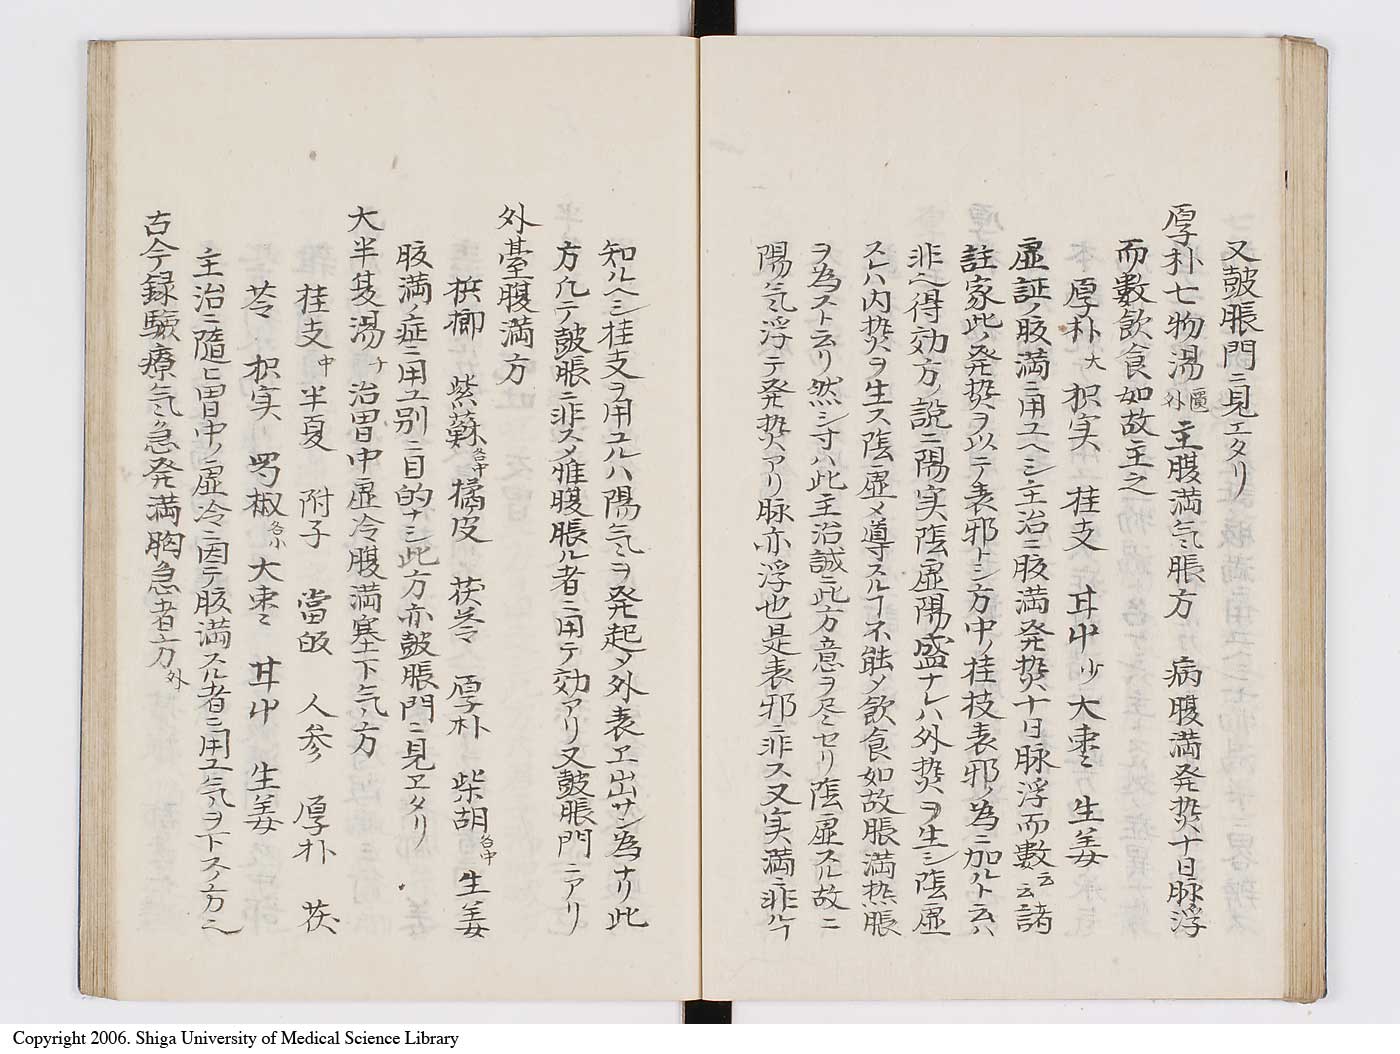 又鼓脹門ニ見エタリ
厚朴七物湯 匱外 主腹満気脹方 病腹満発熱十日脉浮
而數飲食如故主之
厚朴大 枳実 桂支 甘中少 大棗ミ 生姜
虚証ノ腹満ニ用ユヘシ主治ニ腹満発熱十日脉浮而數云云諸
註家此ノ発熱ヲ以テ表邪トシ方中ノ桂枝表邪ノ為ニ加ルト云ハ
非ヘ得効方ノ説ニ陽実陰虚陽盛ナレハ外熱ヲ生シ陰虚
スレハ内熱ヲ生ス陰虚メ導スルヿ不能メ飲食如故脹満热脹
ヲ為スト云リ然シ寸ハ此主治誠ニ此方意ヲ尽セリ陰虚スル故ニ
陽気浮テ発熱アリ脉亦浮也是表邪ニ非ス又実満ニ非ル
知ルヘシ桂支ヲ用ユルハ陽気ヲ発起メ外表エ出サン為ナリ此
方凡テ鼓脹ニ非スメ雅腹脹ル者ニ用テ効アリ又鼓脹門ニアリ
外臺腹満方
梹榔 紫蘇各中 橘皮 茯苓 厚朴 柴胡各中 生姜
腹満ノ症ニ用ユ別ニ目的ナシ此方亦鼓脹門ニ見エタリ
大半夏湯千 治胃中虚冷腹満塞下気方
桂支中 半夏 附子 當皈 人参 厚朴 茯
苓 枳実 蜀椒各小 大棗ミ 甘中 生姜
主治ニ随ヒ胃中ノ虚冷ニ因テ腹満スル者ニ用ユ気ヲ下スノ方ヘ
古今録驗療気急発満胸急者方外
Copyright 2006. Shiga University of Medical Science Library